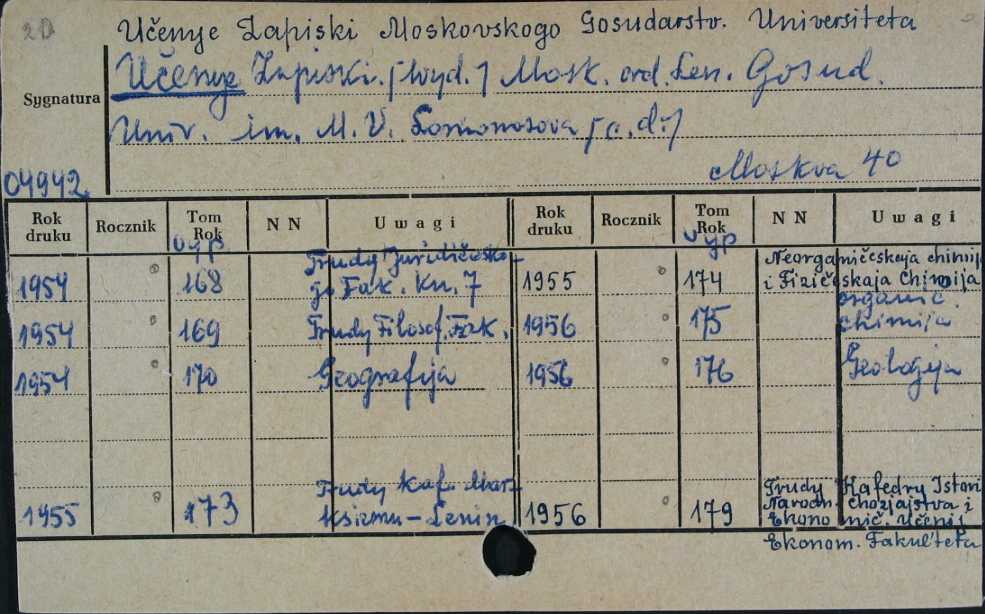 2D
Učenye Zapiski Moskovskogo Gosudarstv. Universiteta
Učenye Zapiski. [wyd.] Mosk. ord. Len. Gosud.
Sygnatura
Univ. im. M. V. Lomonosova [c.d.]
Moskva 40
04942
Rok druku Rocznik Tom Rok NN Uwagi Rok druku Rocznik Tom Rok NN Uwagi
vyp vyp
1954 168 Trudy Juridičesko-
go Fak. Kn. 7
1955 174 Neorganičeskaja chimija
i Fizičeskaja Chimija
1954 169 Trudy Filosof. Fak.
1956 175 organič.
chimija
1954 170 Geografija
1956 176 Geologija
1955 173 Trudy Kaf. Mar-
ksizmu-Lenin
1956 179 Trudy Kafedry Istori
Narodn. Chozjajstva i
Ekonomič. Učenij
Ekonom. Fakul'teta